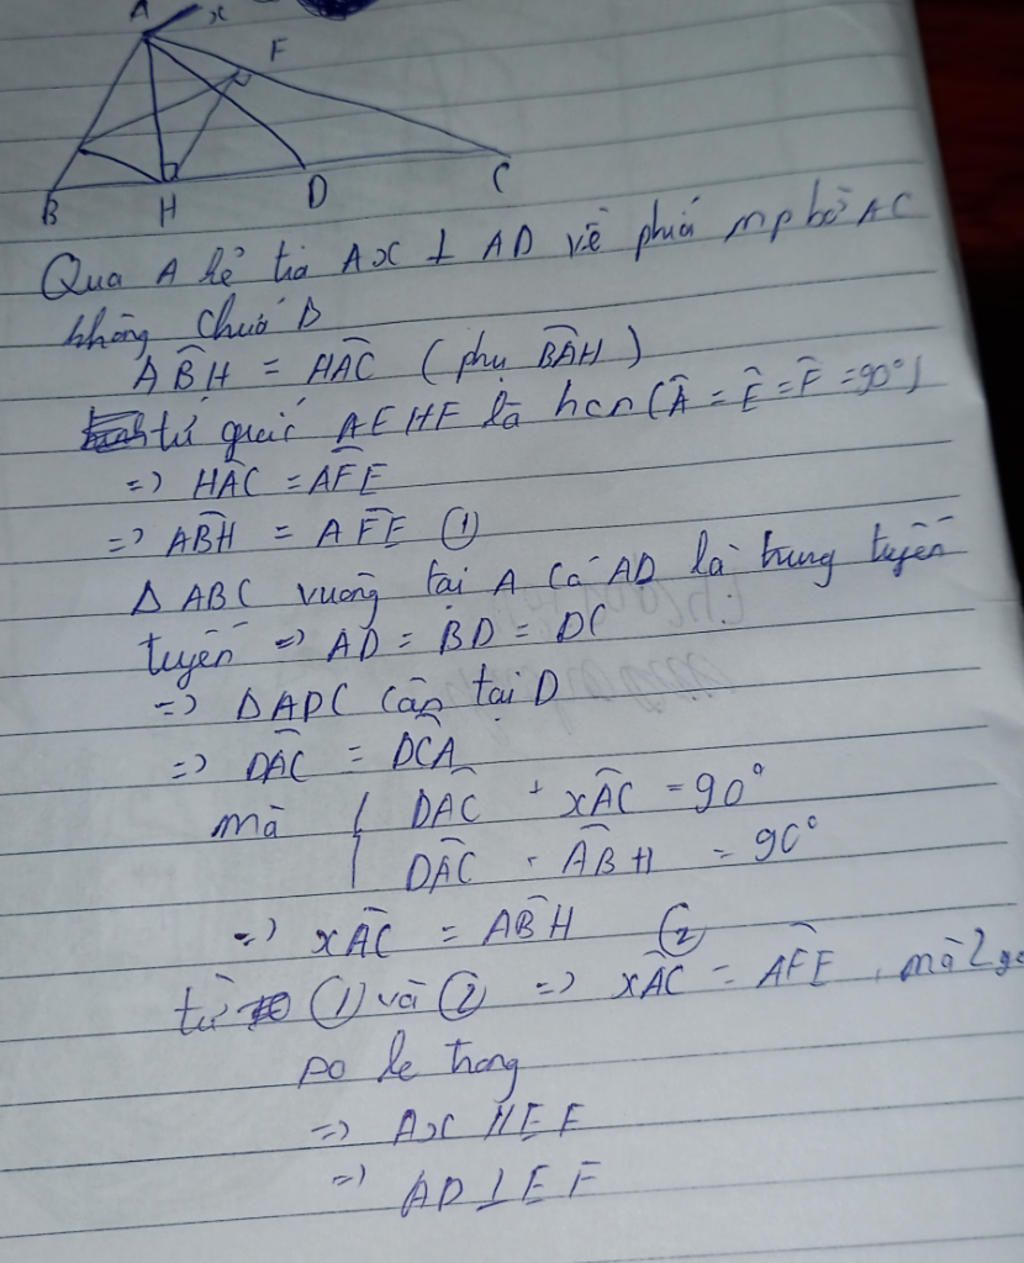 A x
F
B H D C
Qua A kẻ tia Ax ⊥ AD về phía mp bờ AC
không chứa B
ABH = HAC (phụ BAH)
tứ giác AEHF là hcn (Â = Ê = F̂ = 90°)
=> HAC = AFE
=> ABH = AFE (1)
Δ ABC vuông tại A có AD là trung tuyến
tuyến => AD = BD = DC
=> ΔADC cân tại D
=> DAC = DCA
mà { DAC + xAC = 90°
DAC + ABH = 90°
=> xAC = ABH (2)
từ (1) và (2) => xAC = AFE, mà 2
so le trong
=> Ax // EF
=> AD ⊥ EF